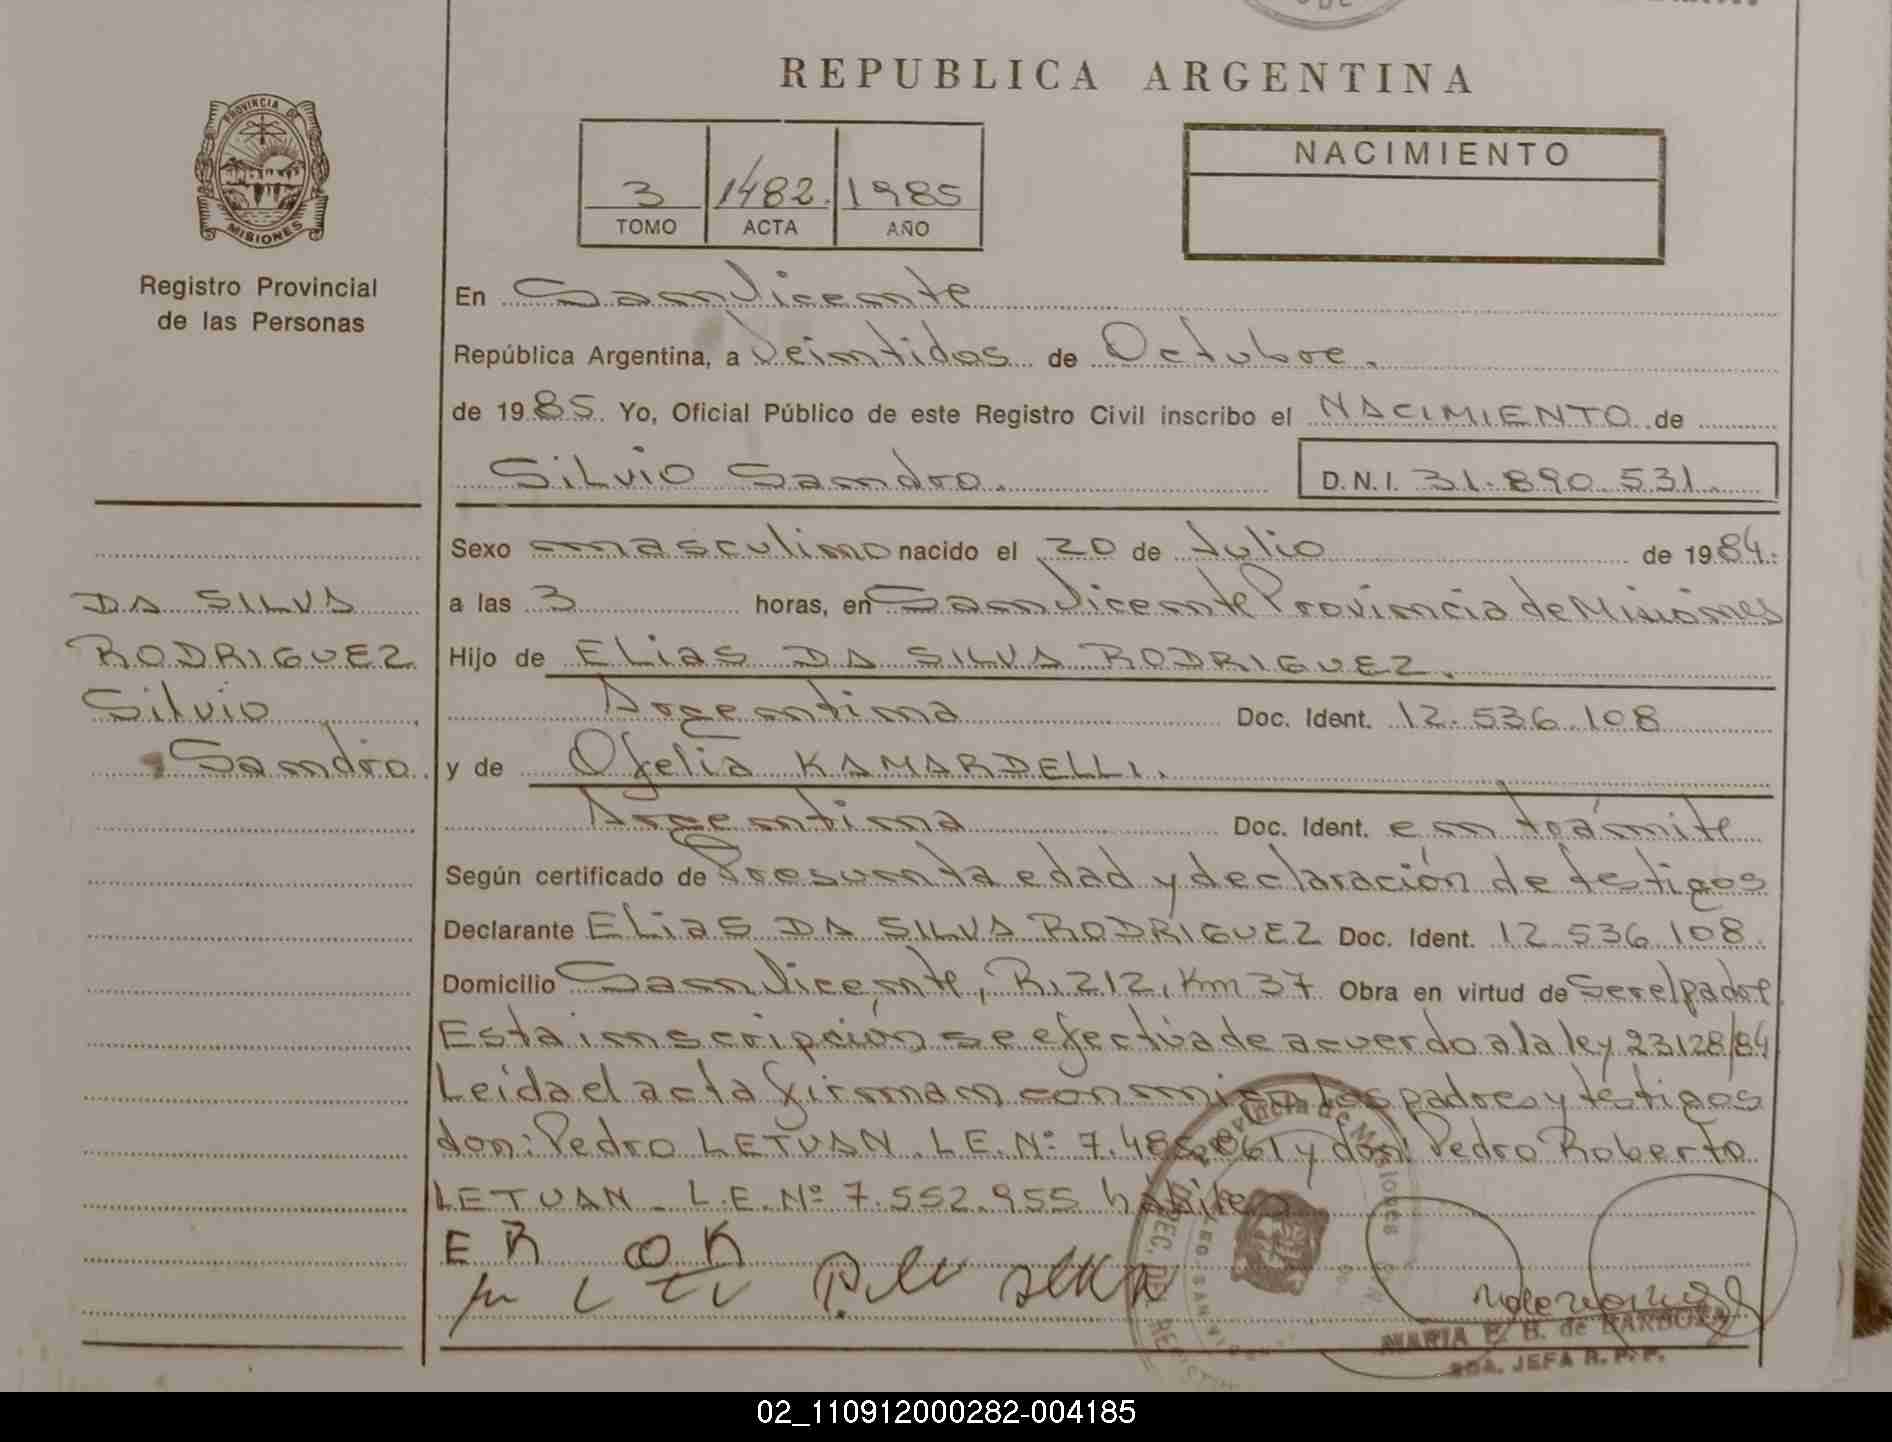 REPUBLICA ARGENTINA
PROVINCIA DE
MISIONES
Registro Provincial
de las Personas
3 1482. 1985
TOMO ACTA AÑO
NACIMIENTO
En San Vicente
República Argentina, a Veintidos de Octubre.
de 1985. Yo, Oficial Público de este Registro Civil inscribo el NACIMIENTO de
Silvio Sandro. D.N.I. 31.890.531.
DA SILVA
RODRIGUEZ
Silvio
Sandro.
Sexo masculino nacido el 20 de Julio de 1984.
a las 3 horas, en San Vicente Provincia de Misiones
Hijo de ELIAS DA SILVA RODRIGUEZ.
Argentina Doc. Ident. 12.536.108
y de Ofelia KAMARDELLI.
Argentina Doc. Ident. en trámite
Según certificado de Presunta edad y declaración de testigos
Declarante ELIAS DA SILVA RODRIGUEZ Doc. Ident. 12.536.108.
Domicilio San Vicente, R. 212, Km 37 Obra en virtud de Ser el padre
Esta inscripción se efectúa de acuerdo a la ley 23.128/84
Leída el acta firman conmigo los padres y testigos
don: Pedro LETVAN. L.E. Nº 7.486.061 y don: Pedro Roberto
LETVAN. L.E. Nº 7.552.955 hábiles
E R O K
Provincia de Misiones
MARIA E. H. de BARBOZA
JEFA R. P. P.
02_110912000282-004185